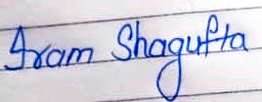 Iram Shagufta